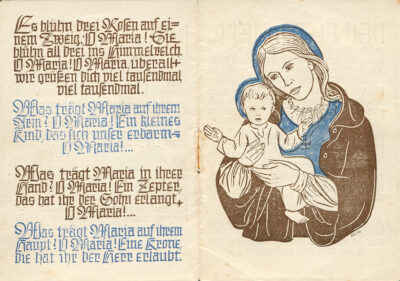 Es blühn drei Rosen auf ei=
nem Zweig, O Maria! Sie
blühn all drei ins Himmelreich,
O Maria! O Maria, überall+
wir grüßen dich viel tausendmal,
viel tausendmal.
Was trägt Maria auf ihrem
Arm? O Maria! Ein kleines
Kind, das sich unser erbarm+
O Maria!...
Was trägt Maria in ihrer
Hand? O Maria! Ein Zepter,
das hat ihr der Sohn erlangt+
O Maria!...
Was trägt Maria auf ihrem
Haupt? O Maria! Eine Krone,
die hat ihr der Herr erlaubt.